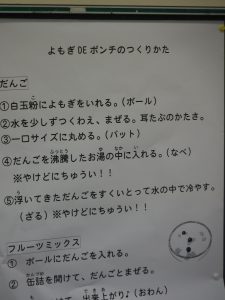 よもぎDEポンチのつくりかた
だんご
①白玉粉によもぎをいれる。(ボール)
②水を少しずつくわえ、まぜる。耳たぶのかたさ。
③一口サイズに丸める。(バット)
④だんごを沸騰したお湯の中に入れる。(なべ)
※やけどにちゅうい！！
⑤浮いてきただんごをすくいとって水の中で冷やす。
(ざる)※やけどにちゅうい！！
フルーツミックス
① ボールにだんごを入れる。
② 缶詰を開けて、だんごとまぜる。
出来上がり♪(おわん)